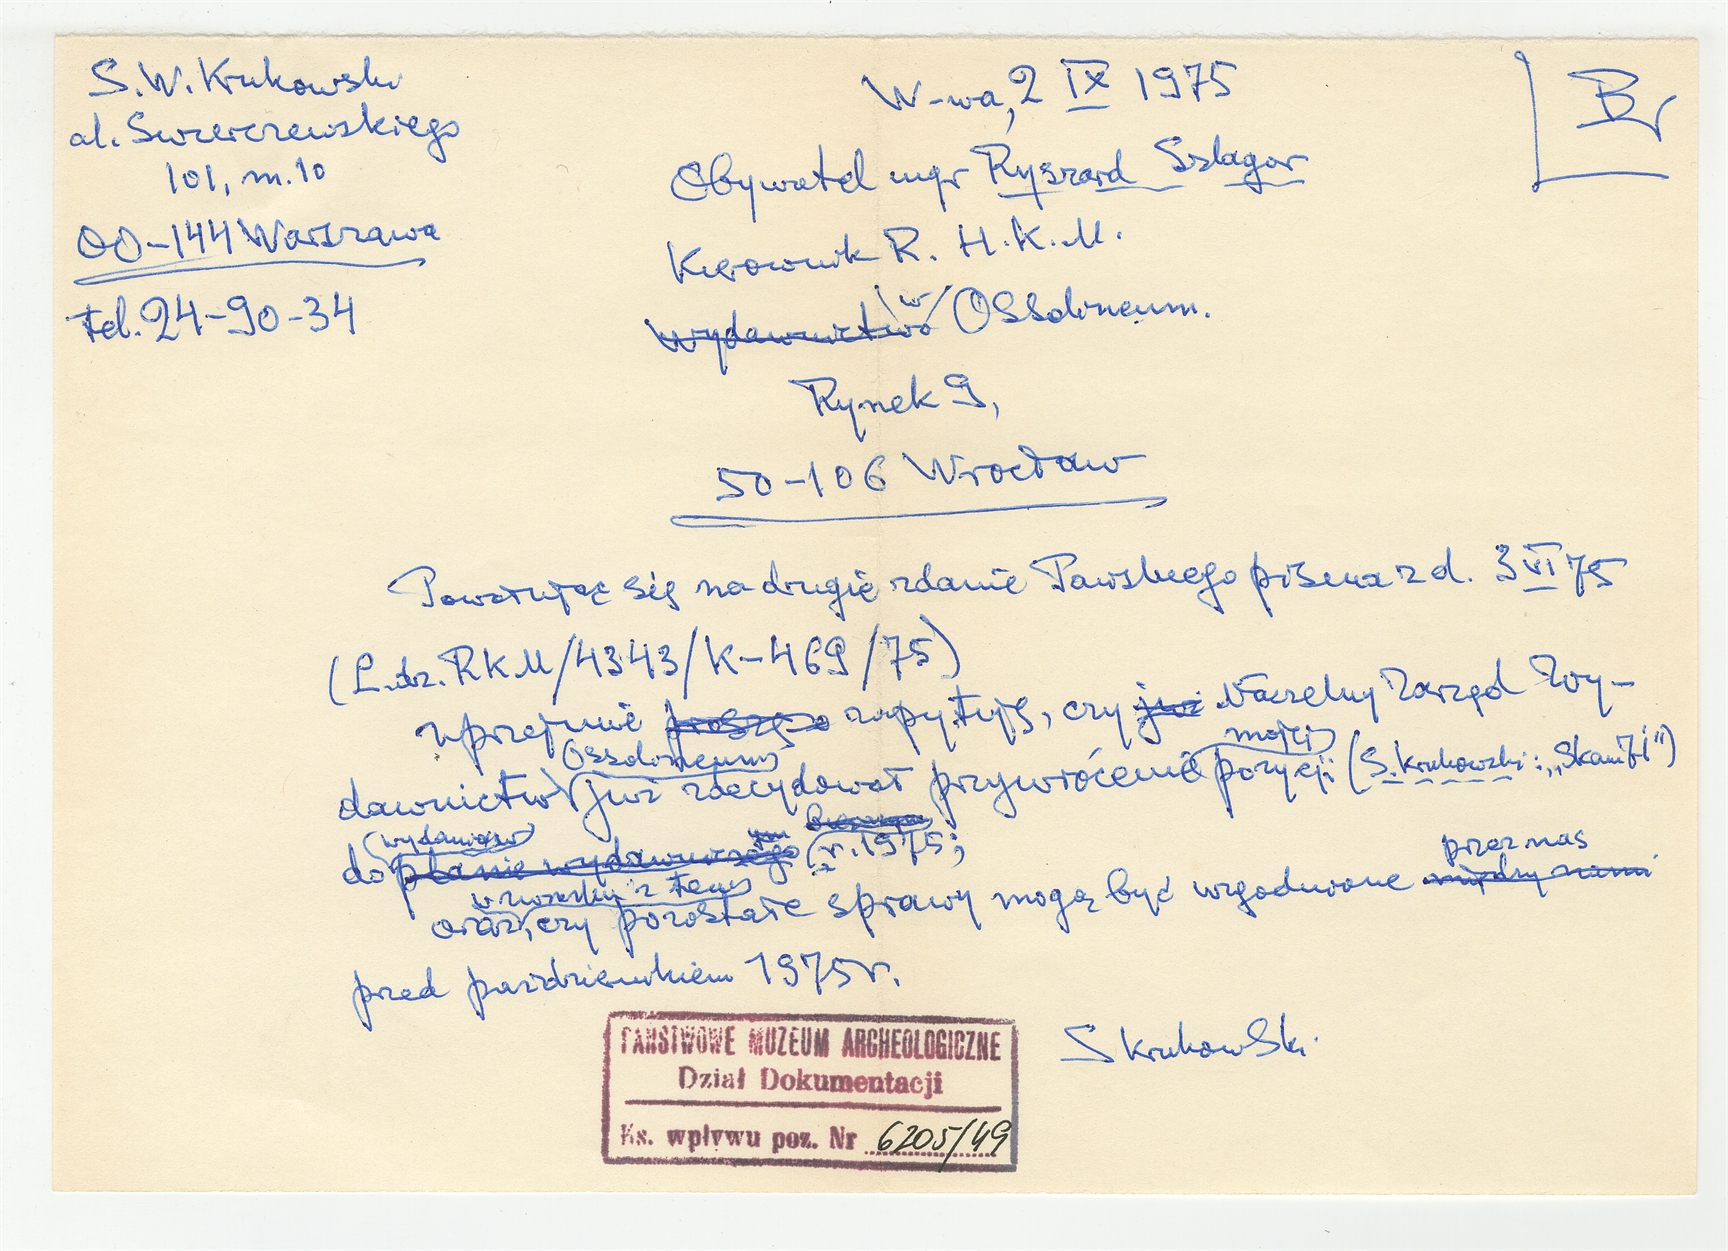 S. W. Krukowski
al. Świerczewskiego
101, m. 10
00-144 Warszawa
tel. 24-90-34
W-wa, 2 IX 1975
Br
Obywatel mgr Ryszard Szlagor
Kierownik R. H. K. M.
wydawnictwo w Ossolineum.
Rynek 9,
50-106 Wrocław
Powołując się na drugie zdanie Pańskiego pisma z d. 3 VI 75
(L.dz. RKM/4343/K-469/75)
uprzejmie proszę o zapytuję, czy już Naczelny Zarząd Wy-
Ossolineum mojej
dawnictw już zdecydował przywrócenie pozycji (S. Krukowski: „Skam 71")
wydawnictw
do planie wydawniczego r. 1975;
w związku z tem przez nas
oraz, czy pozostałe sprawy mogą być uzgodnione między nami
przed październikiem 1975 r.
S Krukowski
PAŃSTWOWE MUZEUM ARCHEOLOGICZNE
Dział Dokumentacji
Ks. wpływu poz. Nr 6205/49